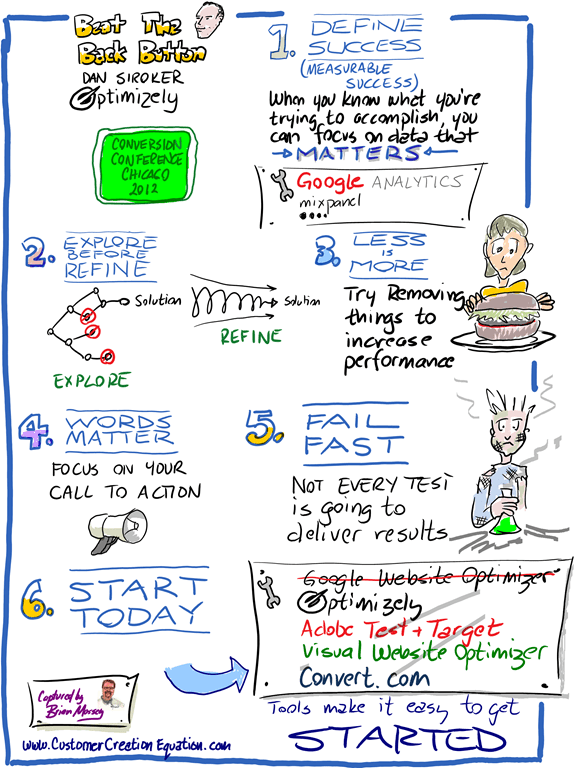 Beat The
Back Button
DAN SIROKER
Optimizely
CONVERSION
CONFERENCE
CHICAGO
2012
1. DEFINE
SUCCESS
(MEASURABLE
SUCCESS)
When you know what you're
trying to accomplish, you
can focus on data that
MATTERS
Google ANALYTICS
mixpanel
2. EXPLORE
BEFORE
REFINE
Solution
EXPLORE
Solution
REFINE
3. LESS
IS
MORE
Try Removing
things to
increase
performance
4. WORDS
MATTER
FOCUS ON YOUR
CALL TO ACTION
5. FAIL
FAST
NOT EVERY TEST
is going to
deliver results
6. START
TODAY
Google Website Optimizer
Optimizely
Adobe Test + Target
Visual Website Optimizer
Convert.com
Tools make it easy to get
STARTED
Captured by
Brian Massey
www.CustomerCreationEquation.com